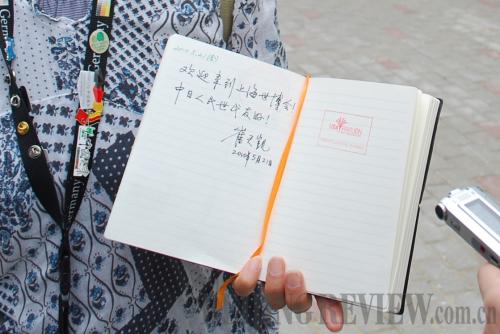 欢迎来到上海世博会!
中日人民世代友好!
崔天凯
2010年5月21日
Germany
Germany
REVIEW.com.cn